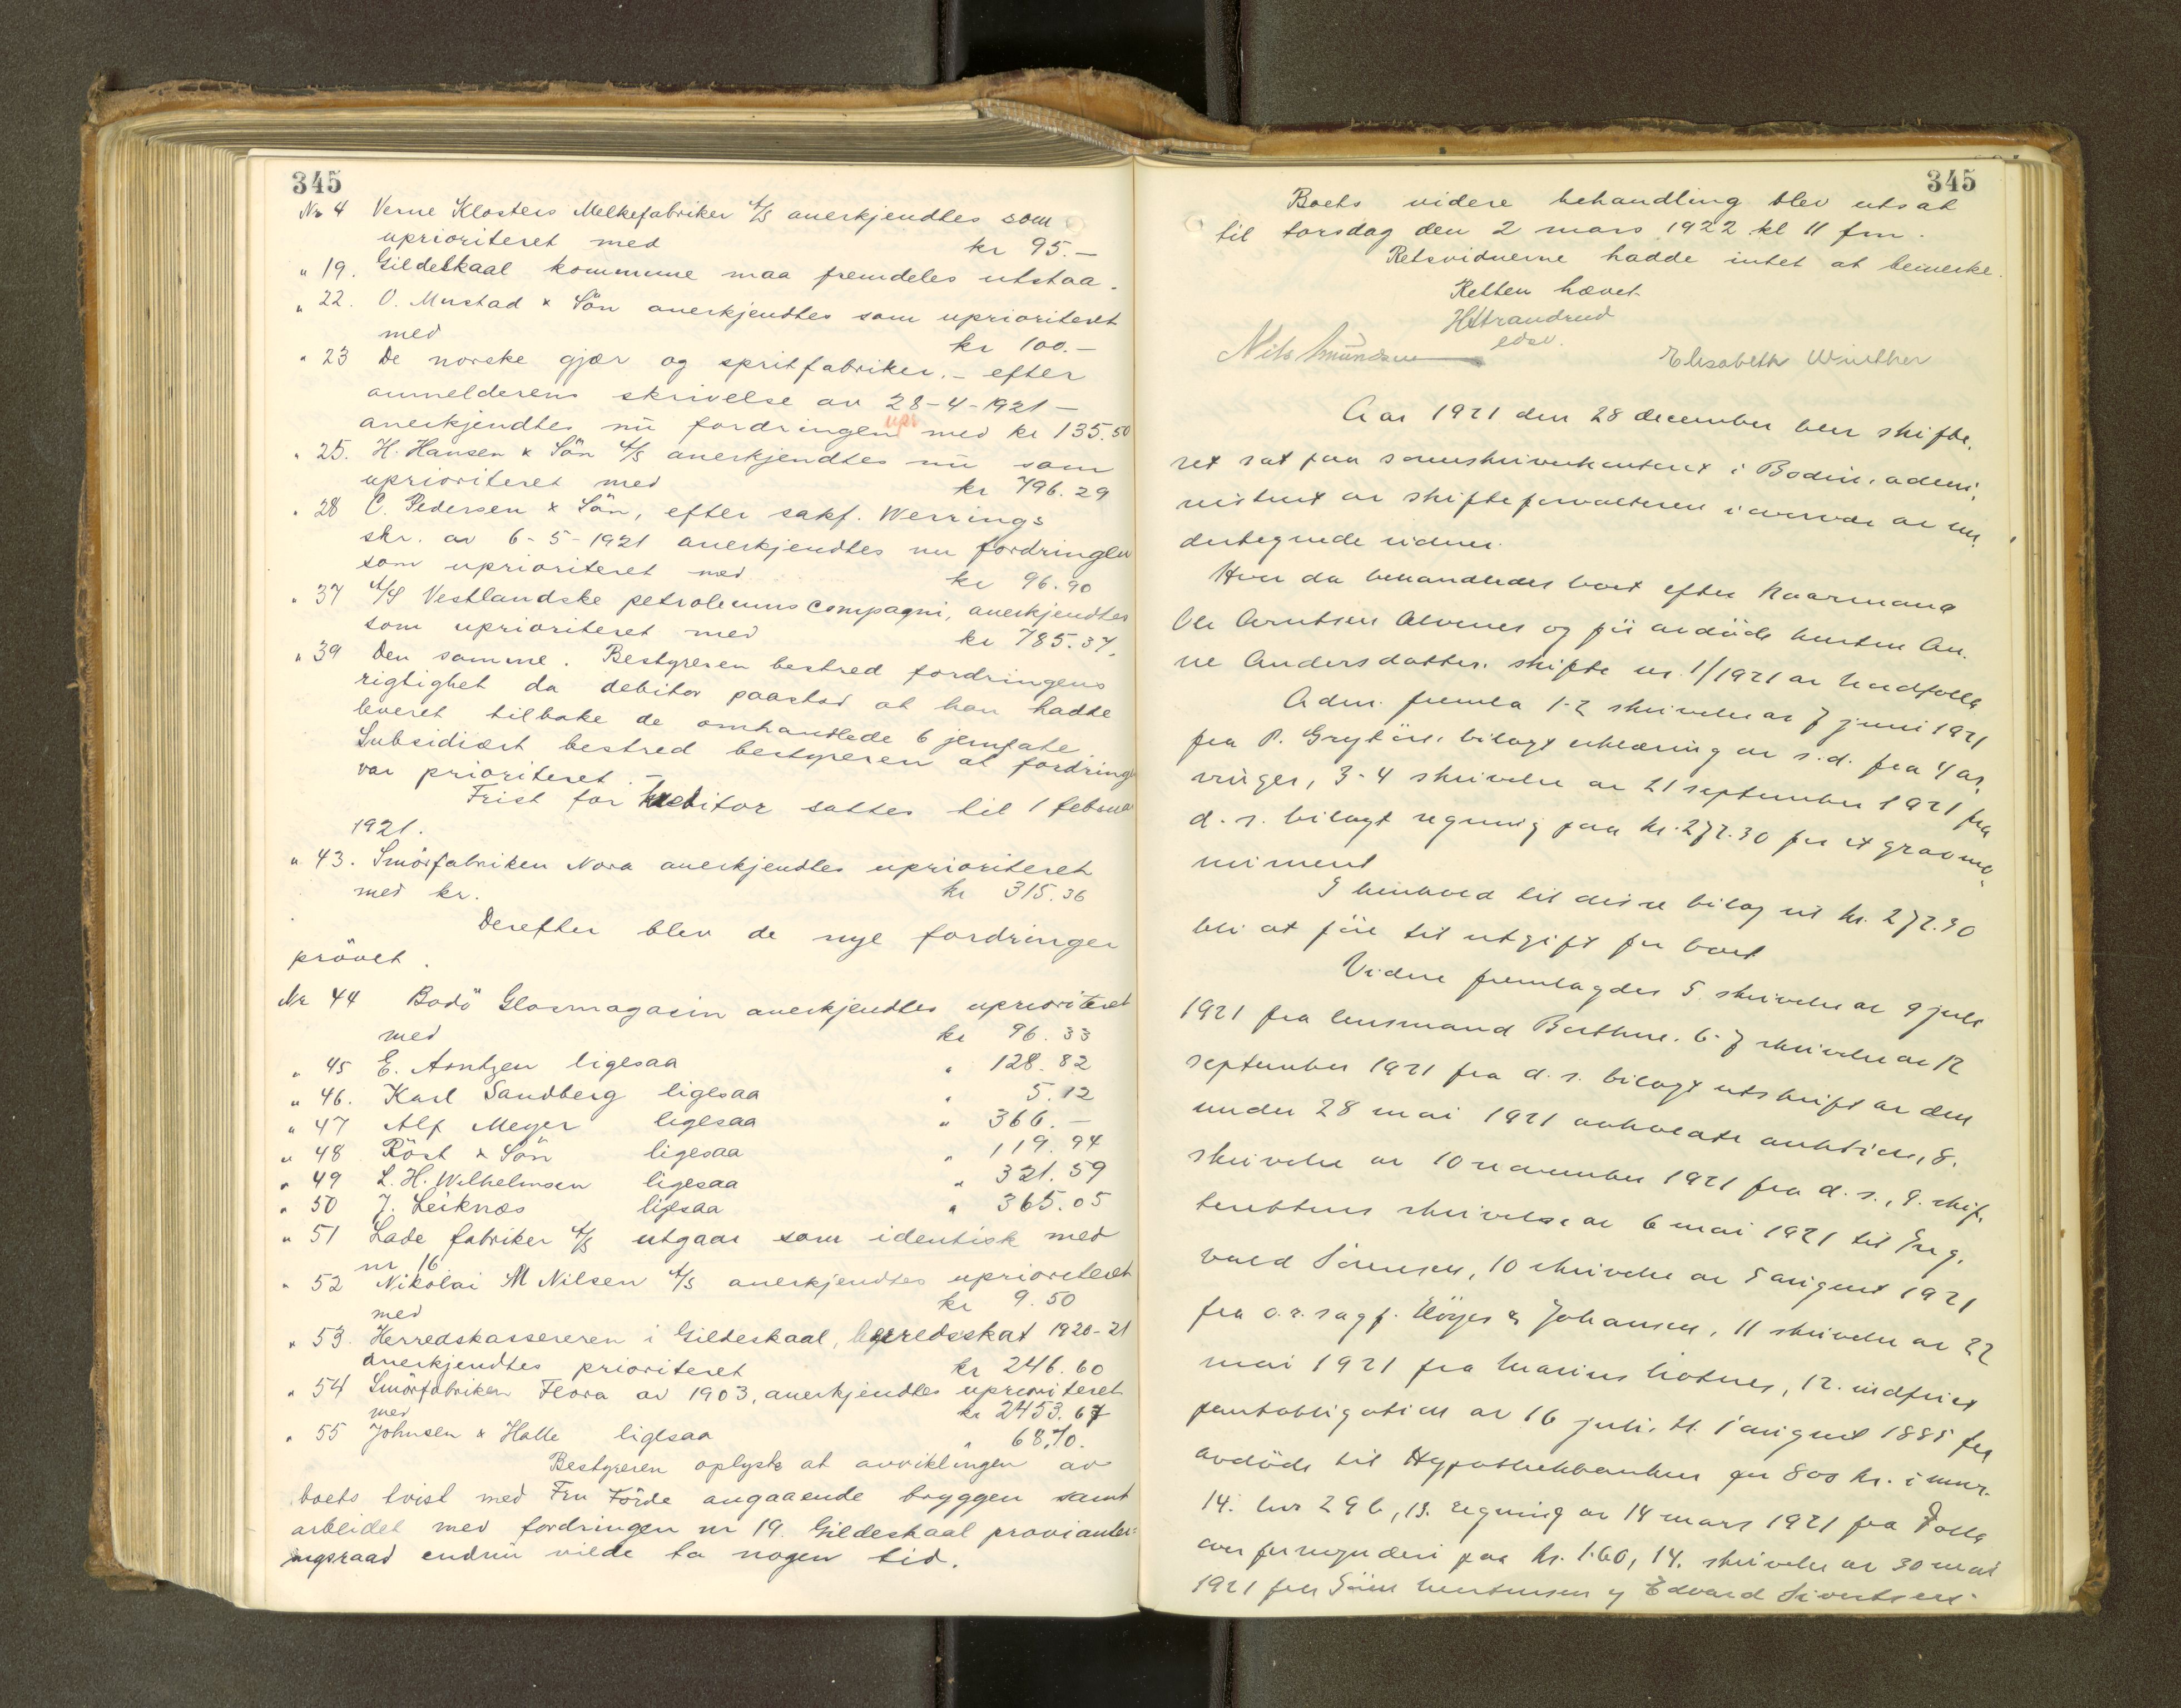 345
Nr 4 Verne Klosters Melkefabriker A/S anerkjendtes som
uprioriteret med kr 95.—
" 19. Gildeskaal kommune maa fremdeles utstaa.
" 22. O. Mustad & Sön anerkjendtes som uprioriteret
med kr 100.—
" 23 De norske gjær og spritfabriker. – efter
anmelderens skrivelse av 28-4-1921 –
anerkjendtes nu fordringen upr med kr 135.50
" 25. H. Hansen & Sön A/S anerkjendtes nu som
uprioriteret med kr 796.29
" 28 C. Pedersen & Sön, efter sakf. Werrings
skr. av 6-5-1921 anerkjendtes nu fordringen
som uprioriteret med kr 96.90
" 37 A/S Vestlandske petroleumscompagni, anerkjendtes
som uprioriteret med kr 785.37.
" 39 Den samme. Bestyreren bestred fordringens
rigtighet da debitor paastod at han hadde
leveret tilbake de omhandlede 6 jernfate.
Subsidiært bestred bestyreren at fordringen
var prioriteret. –
Frist for kreditor sattes til 1 februar
1921.
" 43. Smörfabriken Nora anerkjendtes uprioriteret
med kr. kr 315.36
Derefter blev de nye fordringer
prövet.
Nr 44 Bodö Glasmagasin anerkjendtes uprioriteret
med kr 96.33
" 45 E. Arntzen ligesaa " 128.82
" 46. Karl Sandberg ligesaa " 5.12
" 47 Alf Meyer ligesaa " 366.—
" 48 Röst & Sön ligesaa " 119.94
" 49 L.H. Wilhelmsen ligesaa " 321.59
" 50 J. Leiknes ligesaa " 365.05
" 51 Lade fabriker A/S utgaar som identisk med
nr 16
" 52 Nikolai M Nilsen A/S anerkjendtes uprioriteret
med kr 9.50
" 53. Herredskassereren i Gildeskaal, herredsskat 1920-21
anerkjendtes prioriteret kr 246.60
" 54 Smörfabriken Flora av 1903, anerkjendtes uprioriteret
med kr 2453.67
" 55 Johnsen & Halle ligesaa " 68.70.
Bestyreren oplyste at avviklingen av
boets tvist med Fru Förde angaaende bryggen samt
arbeidet med fordringen nr 19. Gildeskaal provianter=
ingsraad endnu vilde ta nogen tid.
345
Boets videre behandling blev utsat
til torsdag den 2 mars 1922 kl 11 fm.
Retsvidnerne hadde intet at bemerke.
Retten hævet.
HStrandrud
edsv.
Nils Amundsen Elisabeth Winther
Aar 1921 den 28 december blev skifte-
ret sat paa sorenskriverkontoret i Bodin, admi-
nistrert av skifteforvalteren i overvær av un-
dertegnede vidner.
Hvor da behandledes boet efter kaarmand
Ole Arntsen Alvenes og før avdøde hustru An-
ne Andersdatter. skifte nr. 1/1921 av Nordfolla
Adm. fremla 1-2 skrivelse av 7 juni 1921
fra P. Grytøir, bilagt erklæring av s.d. fra 4 ar-
vinger, 3-4 skrivelse av 21 september 1921 fra
d.s. bilagt regning paa kr. 272.30 for et gravmo-
nument
I henhold til disse bilag vil kr. 272.30
bli at føre til utgift for boet
Videre fremlagdes 5. skrivelse av 9 juli
1921 fra lensmand Berthun. 6-7 skrivelse av 12
september 1921 fra d.s. bilagt utskrift av den
under 28 mai 1921 avholdte auktion, 8.
skrivelse av 10 november 1921 fra d.s., 9. skif-
terettens skrivelse av 6 mai 1921 til Ing-
vald Sørensen, 10 skrivelse av 5 august 1921
fra o.r.sagf. Høyer & Johansen, 11 skrivelse av 22
mai 1921 fra Marius 12. indfriet
pantobligation av 16 juli, tl. 1 august 1885 fra
avdøde til Hypothekbanken for 800 kr. i mnr.
14. lnr 29 b, 13. regning av 14 mars 1921 fra Folla
overformynderi paa kr. 1.60, 14. skrivelse av 30 mai
1921 fra Sören Mortensen og Edvard Sivertsen.